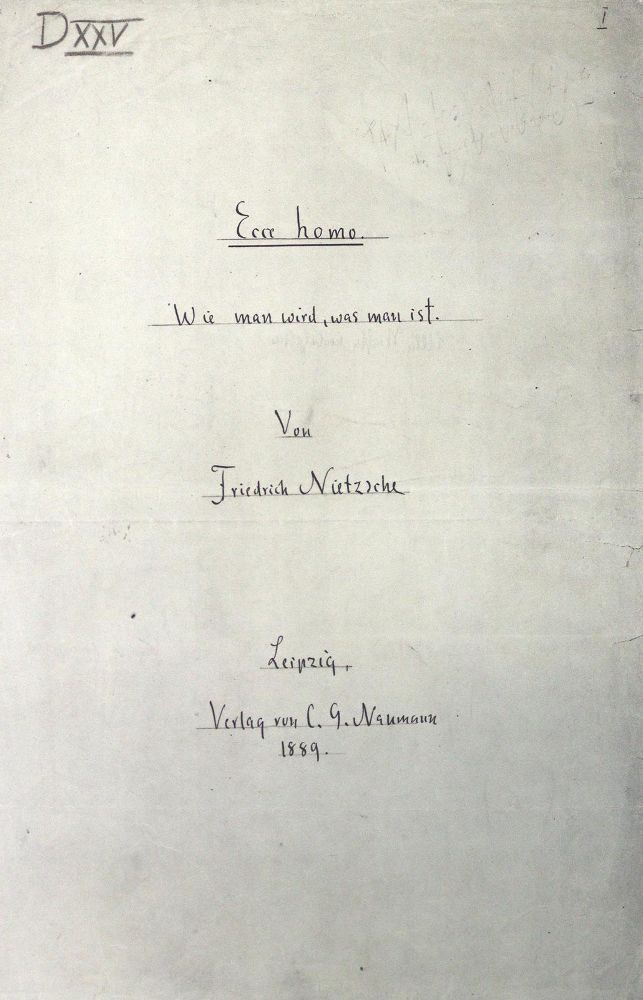 DXXV
I
Ecce homo.
Wie man wird, was man ist.
Von
Friedrich Nietzsche
Leipzig,
Verlag von C. G. Naumann
1889.